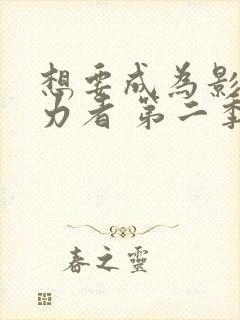 想要成為影
力者 第二季
春之靈